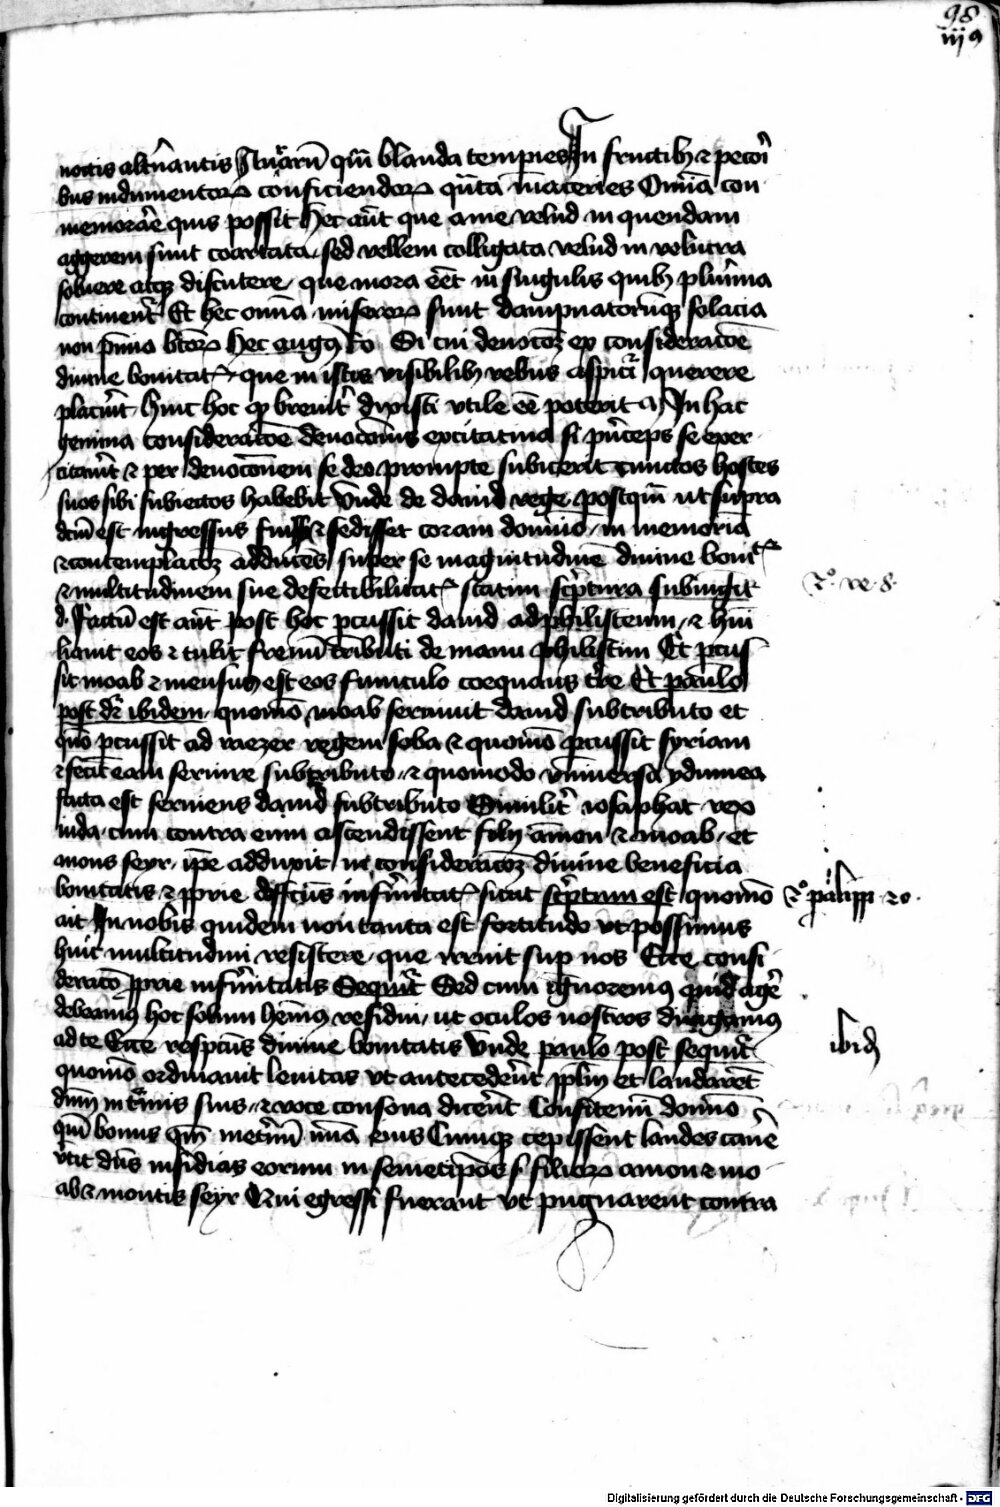 98
iij 9
noctis alt̄nantis Itūarū qm̄ blanda temperies In fructibꝫ ⁊ pecori
bus indumentoꝝ conficiendoꝝ qn̄ta materies Om̄ia con
memorare quis possit Hec aūt que a me velud in quendam
aggerem sunt coartata, sed vellem colligata velud in volucra
soluere atqꝫ discutere, que mora eēt in singulis quibꝫ plurima
continent̄ Et hec om̄ia miseroꝝ sunt dampnatorūqꝫ solacia
non p̄mia b̄toꝝ Hec augꝰ Si cui deuocōꝫ ex consideracōe
diuine bonitat̄ que in istis visibilibꝫ rebus aspicit̄ querere
placuīt huic hoc qd̄ breuit̄ dixisti vtile eē poterit In hac
gemina consideracōe deuocōnis excitatiua si p̄nceps se exer
citauīt ⁊ per deuocōnem se deo prompte subiecerit cunctos hostes
suos sibi subiectos habebit Vnde de dauid rege postqm̄ ut supra
dc̄m est ingressus fuisset ⁊ sedisset coram domino, in memoriā
⁊ contemplacōꝫ adducens super se magnitudinē diuine bonit̄
⁊ multitudinem sue defectibilitat̄ statim sc̄ptura subiungit
d. Factū est aūt post hoc p̄cussit dauid ad philisteum, ⁊ hūi
liauit eos ⁊ tulit frenū tributi de manu philistim Et p̄cus
sit moab ⁊ mensus est eos funiculo coequans t̄re Et paulo
post dr̄ ibidem, quomō moab seruiuit dauid sub tributo et
quō p̄cussit ad raezer regem soba ⁊ quomō p̄cussit syriam
⁊ fecit eam seruire sub tributo, ⁊ quomodo vniuersa ydumea
facta est seruiens dauid sub tributo Similit̄ iosaphat rex
iuda, cum contra eum ascendissent filij amon ⁊ moab, et
mons seyr, ip̄e adduxit in consideracōꝫ diuine beneficia
bonitatis ⁊ p̄prie infirmitat̄ sicut sc̄ptum est quomō
ait In nobis quidem non tanta est fortitudo vt possimus
huic multitudini resistere, que irruit sup̄ nos Ecce consi
deracō p̄prie infirmitatis Sequit̄ Sed cum ignoremꝰ quid agere
debeamꝰ hoc solum hēmꝰ residui, ut oculos nostros dirigamꝰ
ad te Ecce respectus diuine bonitatis Vnde paulo post sequit̄
quomō ordinauit leuitas vt antecederēt p̄lm̄ et laudarēt
dn̄m in t̄mis suis, ⁊ voce consona dicerēt Confitemī domino
qm̄ bonus qm̄ in et̄nū m̄ia eius Cumqꝫ cepissent laudes canē
v̄tit dn̄s insidias eorum in semetip̄os s. filioꝝ amon ⁊ mo
ab ⁊ montis seyr Qui egressi fuerant vt pugnarent contra
2º re. 8.
2º paralipp 20.
ibidē
Digitalisierung gefördert durch die Deutsche Forschungsgemeinschaft - DFG